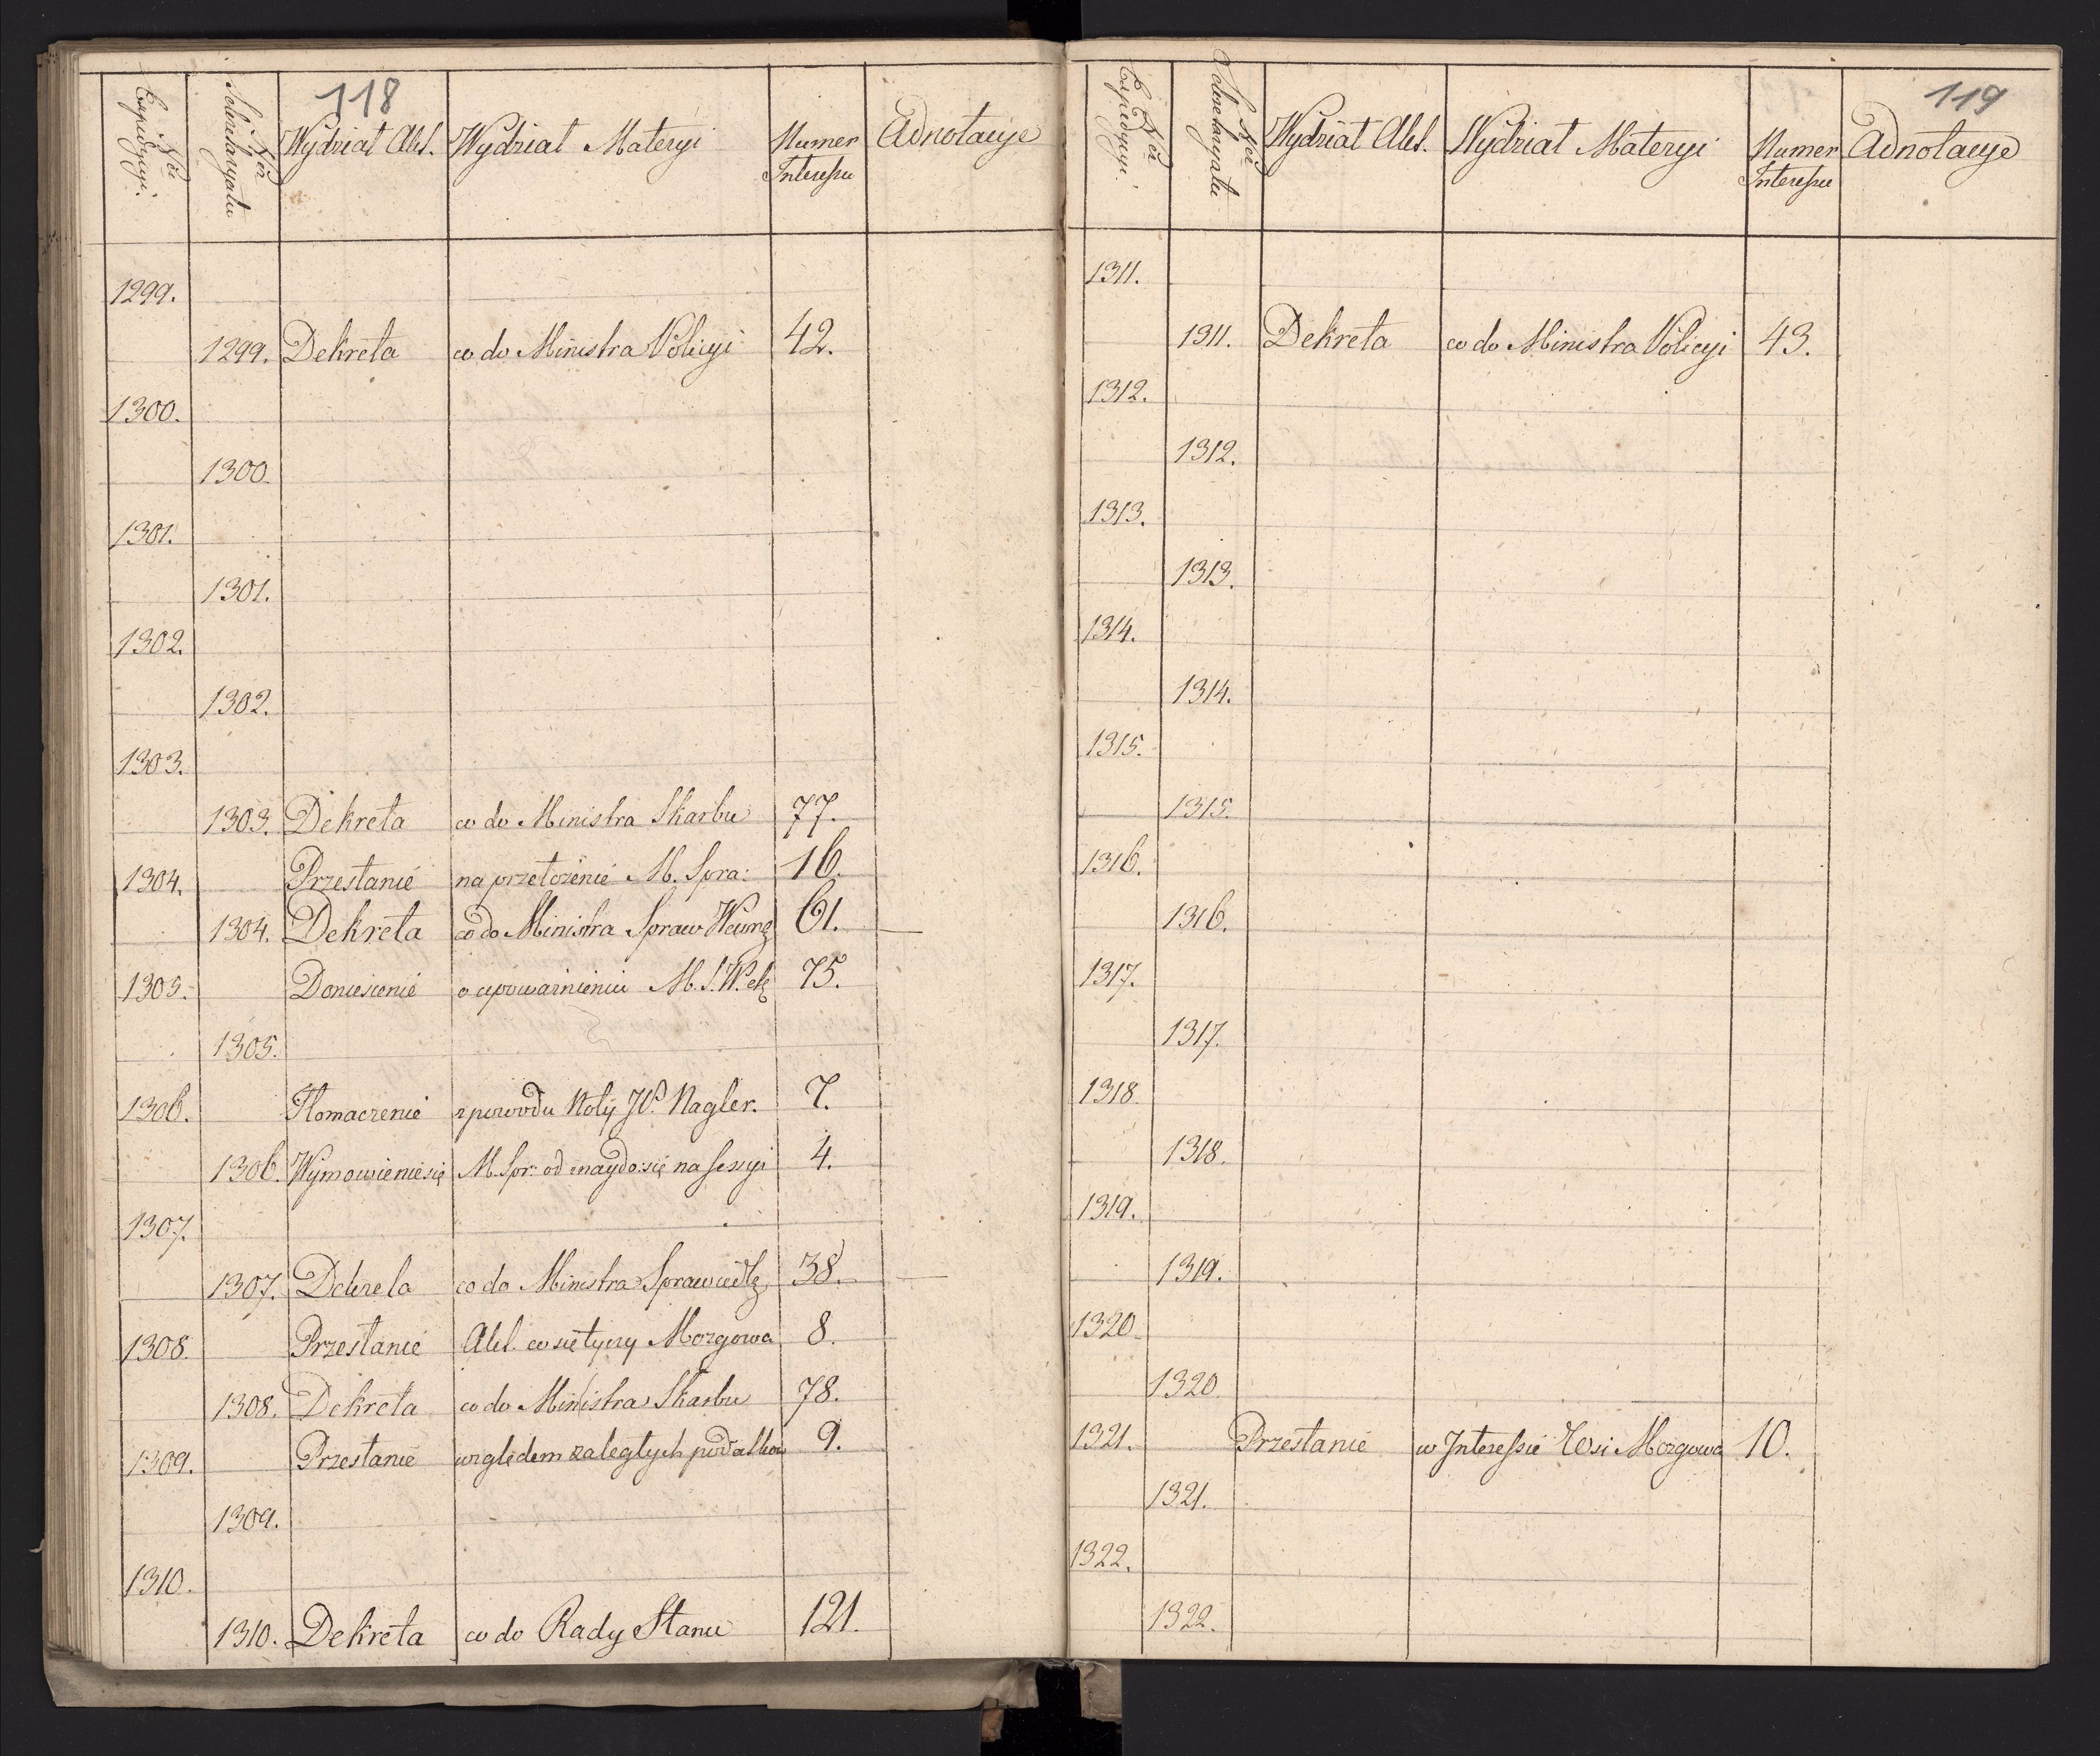 118
Nro Expedycyi.
Nro Sekretaryatu
Wydział Akt.
Wydział Materyi
Numer Interessu
Adnotacye
1299.
1299. Dekreta co do Ministra Policyi 42.
1300.
1300.
1301.
1301.
1302.
1302.
1303.
1303. Dekreta co do Ministra Skarbu 77.
1304. Przesłanie na przełożenie M. Spra: 16.
1304. Dekreta co do Ministra Spraw Wewnę 61.
1305. Doniesienie o upoważnieniu M. S. W. etc 75.
1305.
1306. Tłomaczenie z powodu Noty JP. Nagler. 7.
1306. Wymowienie się M. Spr: od znaydo: się na sessyi 4.
1307.
1307. Dekreta co do Ministra Sprawiedlę 38.
1308. Przesłanie Akt. co się tyczy Mozgowa 8.
1308. Dekreta co do Ministra Skarbu 78.
1309. Przesłanie względem zaległych podatkow 9.
1309.
1310.
1310. Dekreta co do Rady Stanu 121.
119
Nro Expedycyi.
Nro Sekretaryatu
Wydział Akt.
Wydział Materyi
Numer Interessu
Adnotacye
1311.
1311. Dekreta co do Ministra Policyi 43.
1312.
1312.
1313.
1313.
1314.
1314.
1315.
1315.
1316.
1316.
1317.
1317.
1318.
1318.
1319.
1319.
1320.
1320.
1321. Przesłanie w Interessie Wsi Mozgowa 10.
1321.
1322.
1322.